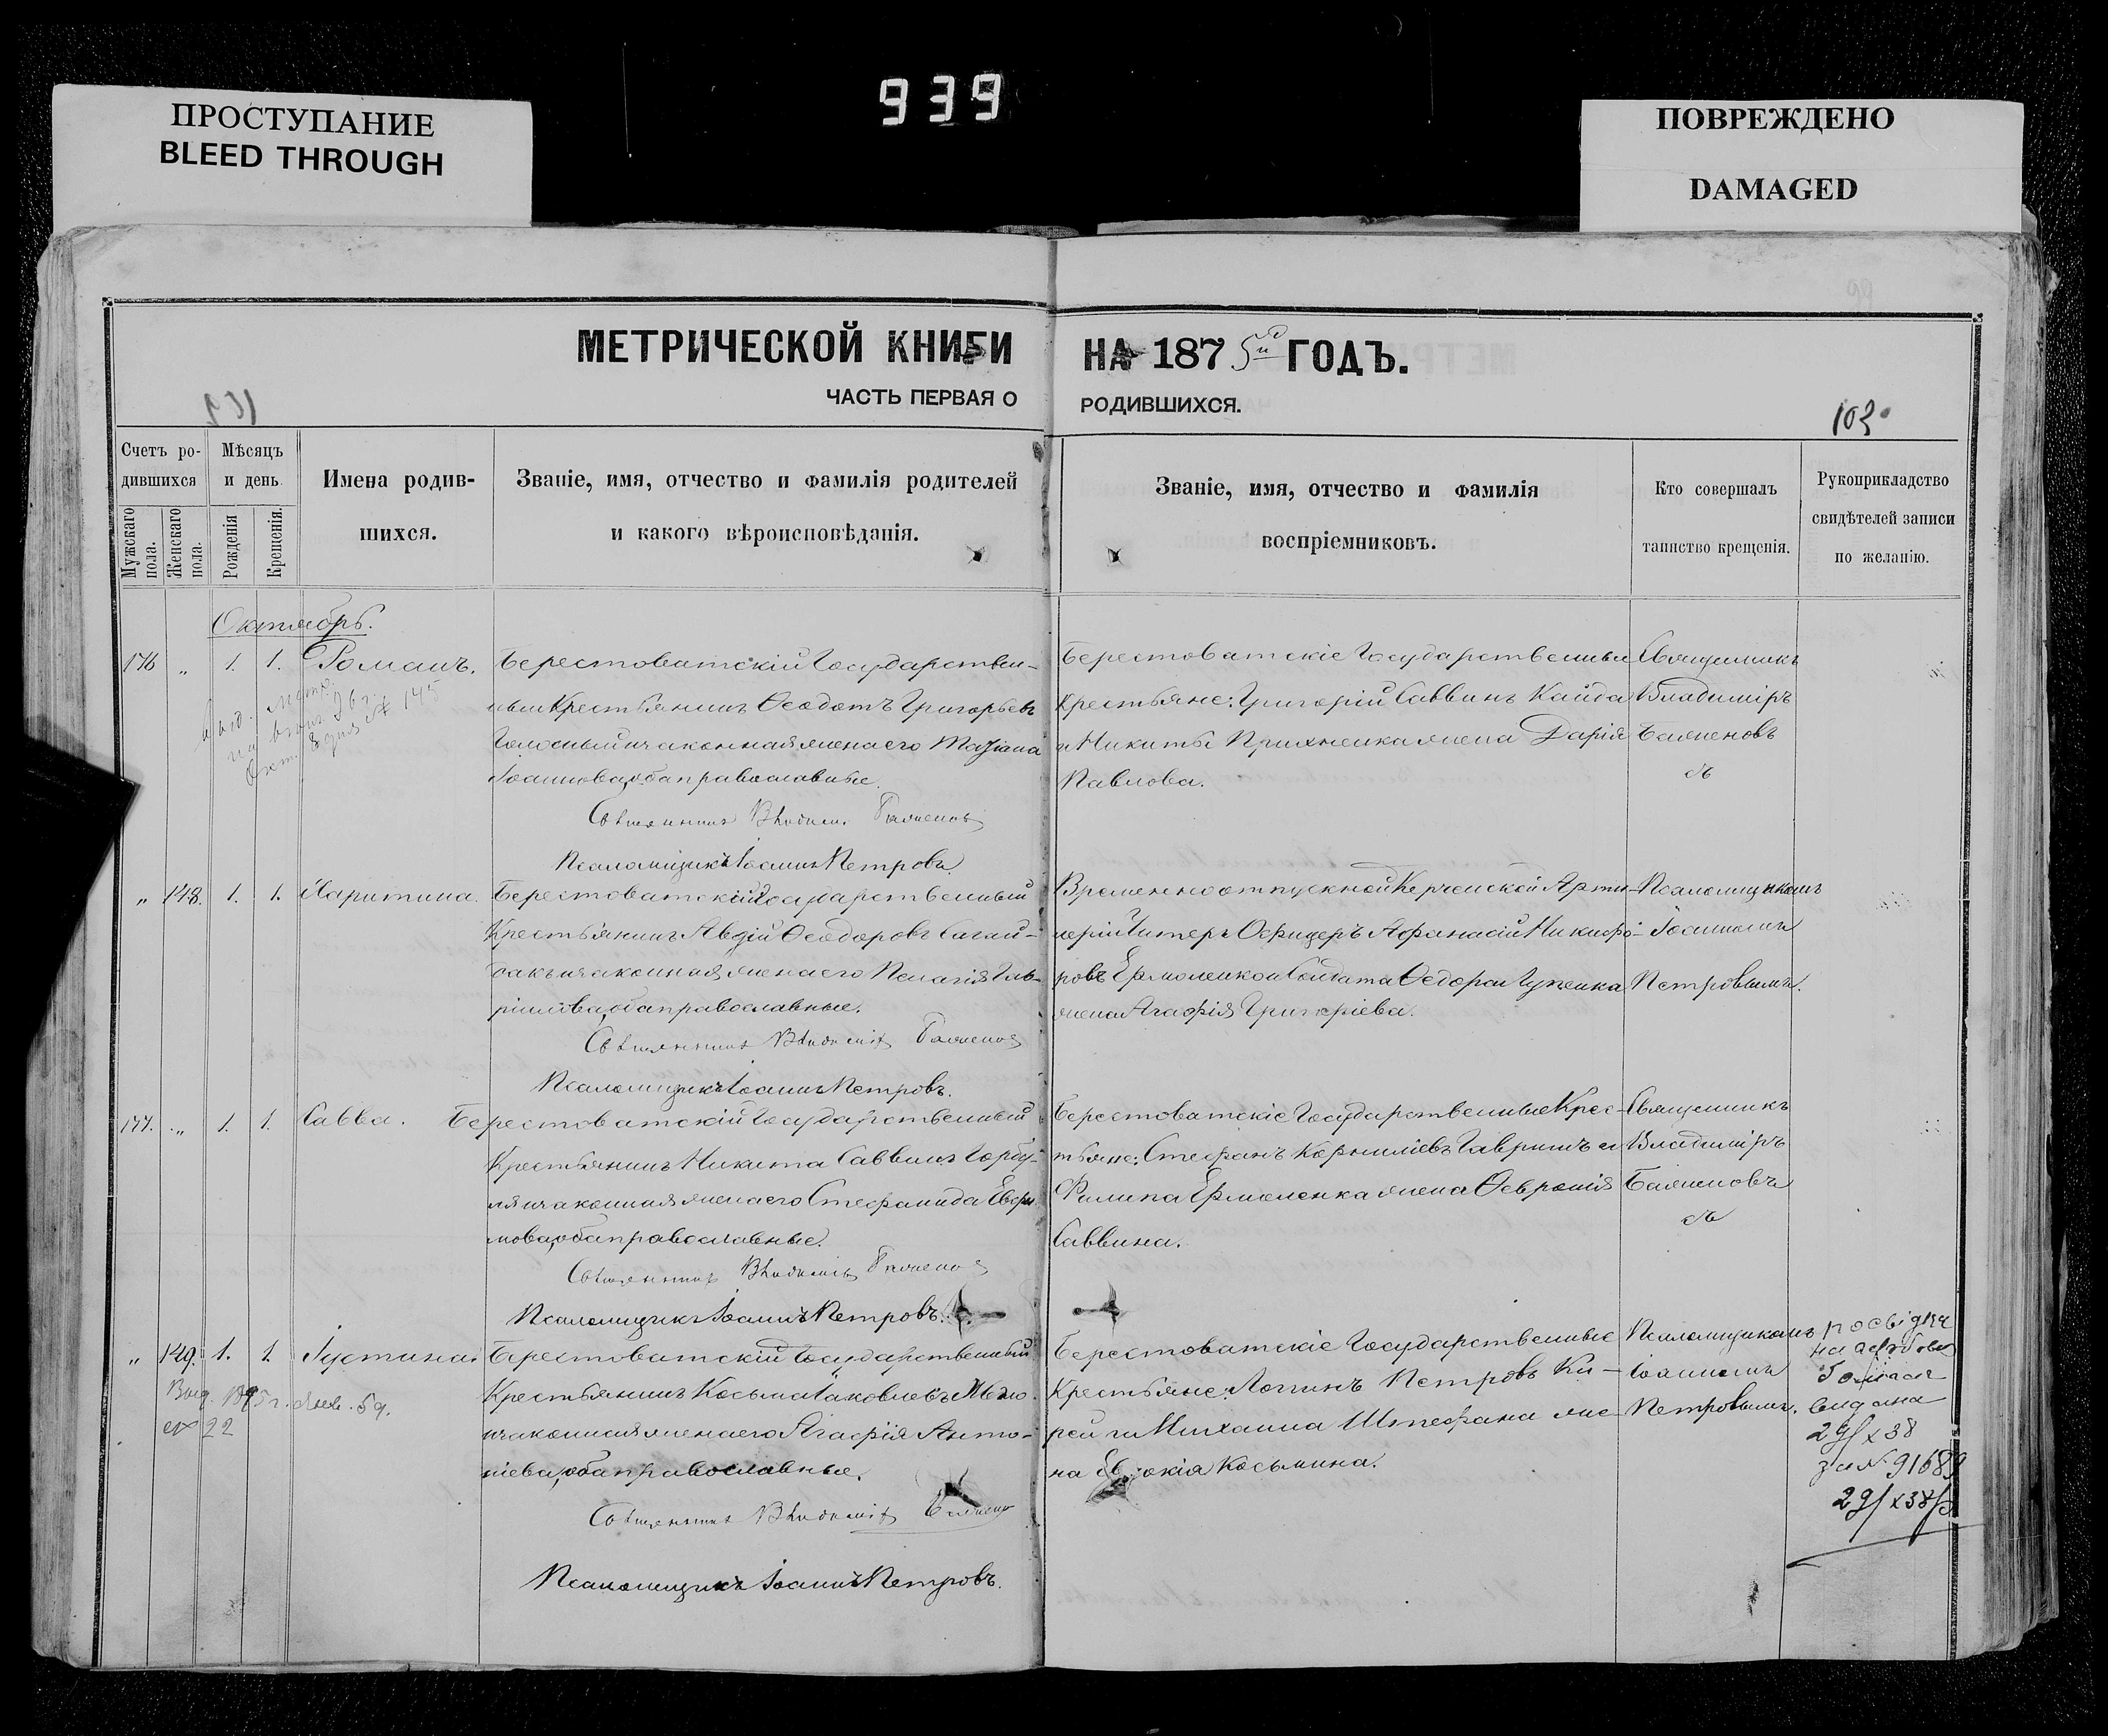 939
ПРОСТУПАНИЕ
BLEED THROUGH
ПОВРЕЖДЕНО
DAMAGED
МЕТРИЧЕСКОЙ КНИГИ НА 1875й ГОДЪ.
ЧАСТЬ ПЕРВАЯ О РОДИВШИХСЯ.
103
Счетъ ро-
дившихся
Мужскаго
пола.
Женскаго
пола.
Мѣсяцъ
и день
Рожденія
Крещенія.
Имена родив-
шихся.
Званіе, имя, отчество и фамилія родителей
и какого вѣроисповѣданія.
Званіе, имя, отчество и фамилія
воспріемниковъ.
Кто совершалъ
таинство крещенія.
Рукоприкладство
свидѣтелей записи
по желанію.
Октябрь.
176 „ 1. 1. Романъ.
Берестоватскій Государствен-
ный Крестьянинъ Ѳеодотъ Григорьевъ
и законная жена его Татіана
Іоаннова, оба православные.
Священникъ Владим. Баженовъ
Псаломщикъ Іоаннъ Петровъ.
Берестоватскіе Государственные
Крестьяне: Григорій Саввинъ Кайда
и Никиты жена Дарія
Павлова.
Священникъ
Владиміръ
Баженовъ
„ 148. 1. 1. Харитина.
Берестоватскій Государственный
Крестьянинъ Авдій Ѳеодоровъ Сагай-
дакъ и законная жена его Пелагія Гав-
ріилова, оба православные.
Священникъ Владиміръ Баженовъ
Псаломщикъ Іоаннъ Петровъ.
Временно отпускной Керченской Арти-
леріи Унтеръ Офицеръ Афанасій Никифо-
ровъ Ермоленко и Солдата Ѳедора
жена Агафія Григоріева.
Псаломщикомъ
Іоанномъ
Петровымъ.
177. „ 1. 1. Савва.
Берестоватскій Государственный
Крестьянинъ Никита Саввинъ Горбу-
ля и законная жена его Стефанида Евфи-
мова, оба православные.
Священникъ Владиміръ Баженовъ
Псаломщикъ Іоаннъ Петровъ.
Берестоватскіе Государственные Крес-
тьяне: Стефанъ Корниліевъ Гавришъ и
Филипа Ермоленка жена Ѳевронія
Саввина.
Священникъ
Владиміръ
Баженовъ
„ 149. 1. 1. Іустина.
Выд. 1895 г. Янв. 59.
22
Берестоватскій Государственный
Крестьянинъ Косьма Іаковлевъ
и законная жена его Агафія Анто-
ніева, оба православные.
Священникъ Владиміръ Баженовъ
Псаломщикъ Іоаннъ Петровъ.
Берестоватскіе Государственные
Крестьяне: Логинъ Петровъ Ки-
рей и Михаила Штефана же-
на Евдокія Косьмина.
Псаломщикомъ
Іоанномъ
Петровымъ.
посвідка
видана
29/X 38
за № 91689
29/X 38р